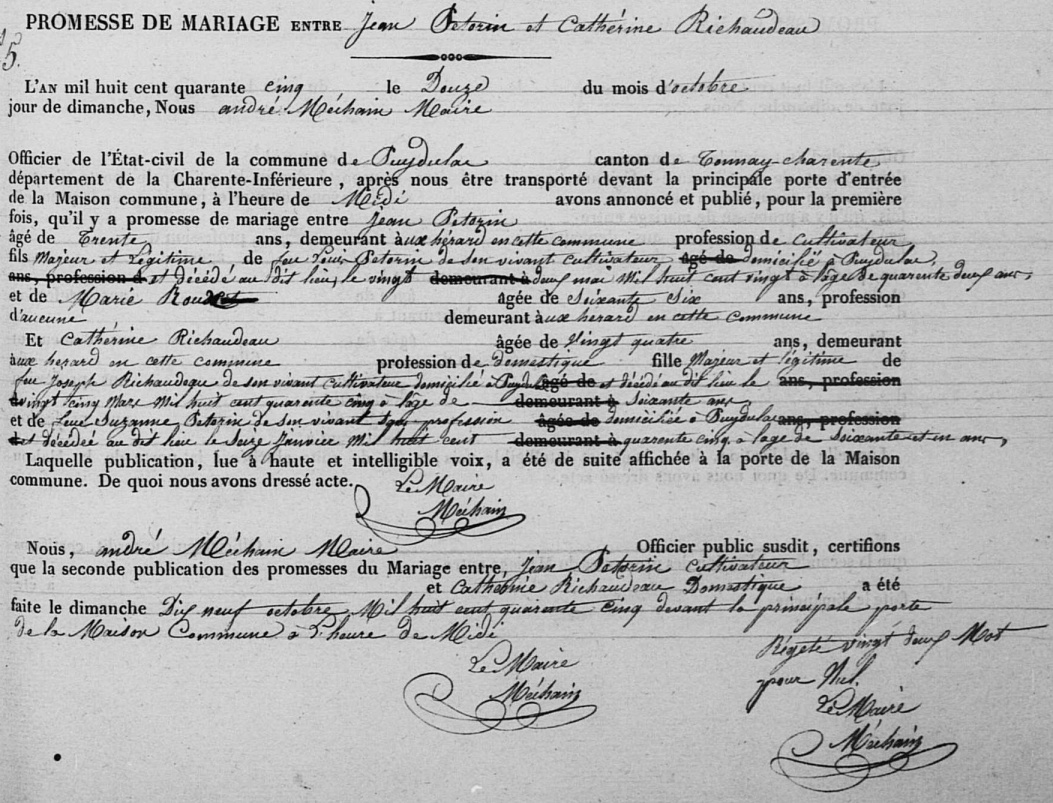 PROMESSE DE MARIAGE ENTRE Jean Petorin et Cathérine Richaudeau
5
L'AN mil huit cent quarante cinq le Douze du mois d'octobre
jour de dimanche, Nous andré Méchain Maire
Officier de l'État-civil de la commune de Puydulac canton de Tonnay-charente
département de la Charente-Inférieure, après nous être transporté devant la principale porte d'entrée
de la Maison commune, à l'heure de Midi avons annoncé et publié, pour la première
fois, qu'il y a promesse de mariage entre jean Petorin
âgé de Trente ans, demeurant àux hérard en cette commune profession de cultivateur
fils Majeur et Légitime de feu Louis Petorin de son vivant cultivateur âgé de domicilié à Puydulac,
ans, profession d et décédé au dit lieu, le vingt demeurant à deux mai Mil huit cent vingt à l'âge de quarente deux ans,
et de Marie âgée de Soixante Six ans, profession
d'aucune demeurant àux herard en cette commune
Et Cathérine Richaudeau âgée de Vingt quatre ans, demeurant
àux herard en cette commune profession de domestique fille Majeur et légitime de
feu Joseph Richaudeau de son vivant cultivateur domicilié à Puydulac âgé de et décédé au dit lieu le ans, profession
vingt cinq Mars Mil huit cent quarente cinq à l'âge de demeurant à Soixante ans
et de feue Suzanne Petorin de son vivant sans profession âgée de domiciliée à Puydulac ans, profession
décédée au dit lieu le Seize janvier Mil huit cent demeurant à quarente cinq à l'age de Soixante et un ans,
Laquelle publication, lue à haute et intelligible voix, a été de suite affichée à la porte de la Maison
commune. De quoi nous avons dressé acte. Le Maire
Méchain
Nous, andré Méchain Maire Officier public susdit, certifions
que la seconde publication des promesses du Mariage entre, Jean Petorin cultivateur
et Cathérine Richaudeau Domestique a été
faite le dimanche Dix neuf octobre Mil huit cent quarente cinq devant la principale porte
de la Maison Commune à L'heure de Midi
Régeté vingt deux Mot
pour Nul.
Le Maire
Méchain
Le Maire
Méchain